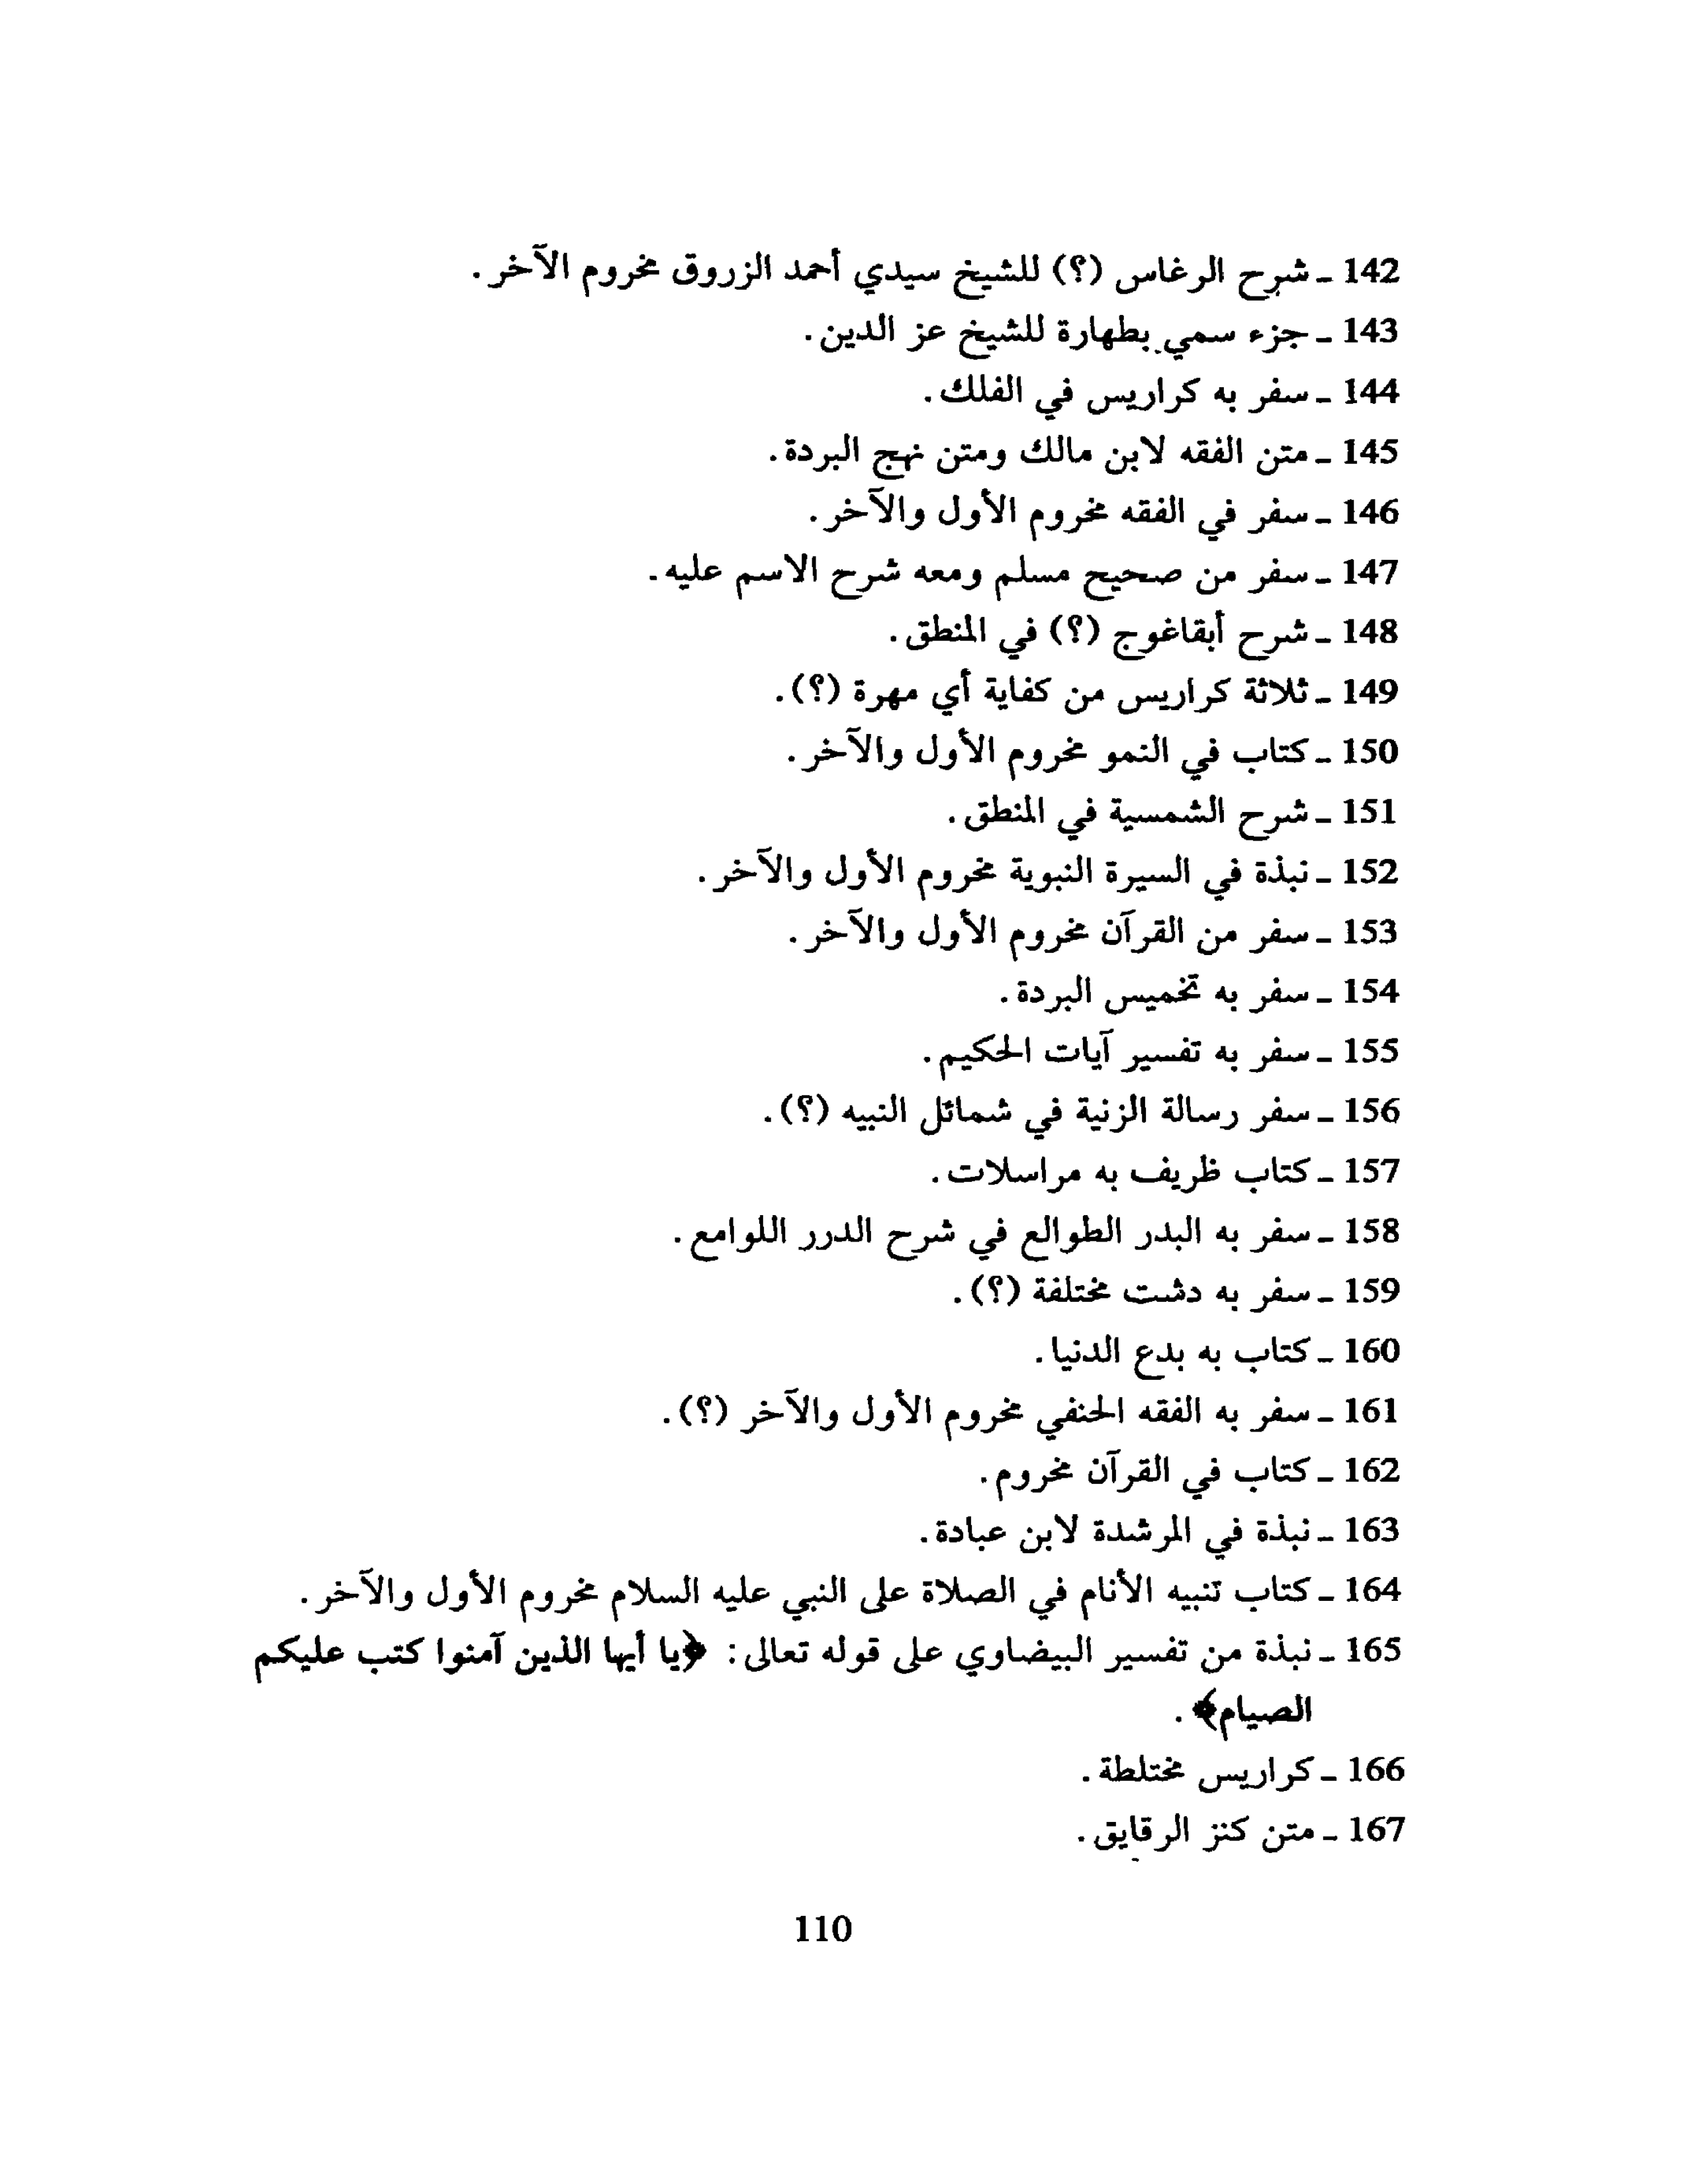 142 ـ شرح الرغاس (؟) للشيخ سيدي أحمد الزروق مخروم الآخر.
143 ـ جزء سمي بطهارة للشيخ عز الدين.
144 ـ سفر به كراريس في الفلك.
145 ـ متن الفقه لابن مالك ومتن نهج البردة.
146 ـ سفر في الفقه مخروم الأول والآخر.
147 ـ سفر من صحيح مسلم ومعه شرح الاسم عليه.
148 ـ شرح أبقاغوج (؟) في المنطق.
149 ـ ثلاثة كراريس من كفاية أي مهرة (؟).
150 ـ كتاب في النمو مخروم الأول والآخر.
151 ـ شرح الشمسية في المنطق.
152 ـ نبذة في السيرة النبوية مخروم الأول والآخر.
153 ـ سفر من القرآن مخروم الأول والآخر.
154 ـ سفر به تخميس البردة.
155 ـ سفر به تفسير آيات الحكيم.
156 ـ سفر رسالة الزنية في شمائل النبيه (؟).
157 ـ كتاب ظريف به مراسلات.
158 ـ سفر به البدر الطوالع في شرح الدرر اللوامع.
159 ـ سفر به دشت مختلفة (؟).
160 ـ كتاب به بدع الدنيا.
161 ـ سفر به الفقه الحنفي مخروم الأول والآخر (؟).
162 ـ كتاب في القرآن مخروم.
163 ـ نبذة في المرشدة لابن عبادة.
164 ـ كتاب تنبيه الأنام في الصلاة على النبي عليه السلام مخروم الأول والآخر.
165 ـ نبذة من تفسير البيضاوي على قوله تعالى: ﴿يا أيها الذين آمنوا كتب عليكم
الصيام﴾.
166 ـ كراريس مختلطة.
167 ـ متن كنز الرقايق.
110